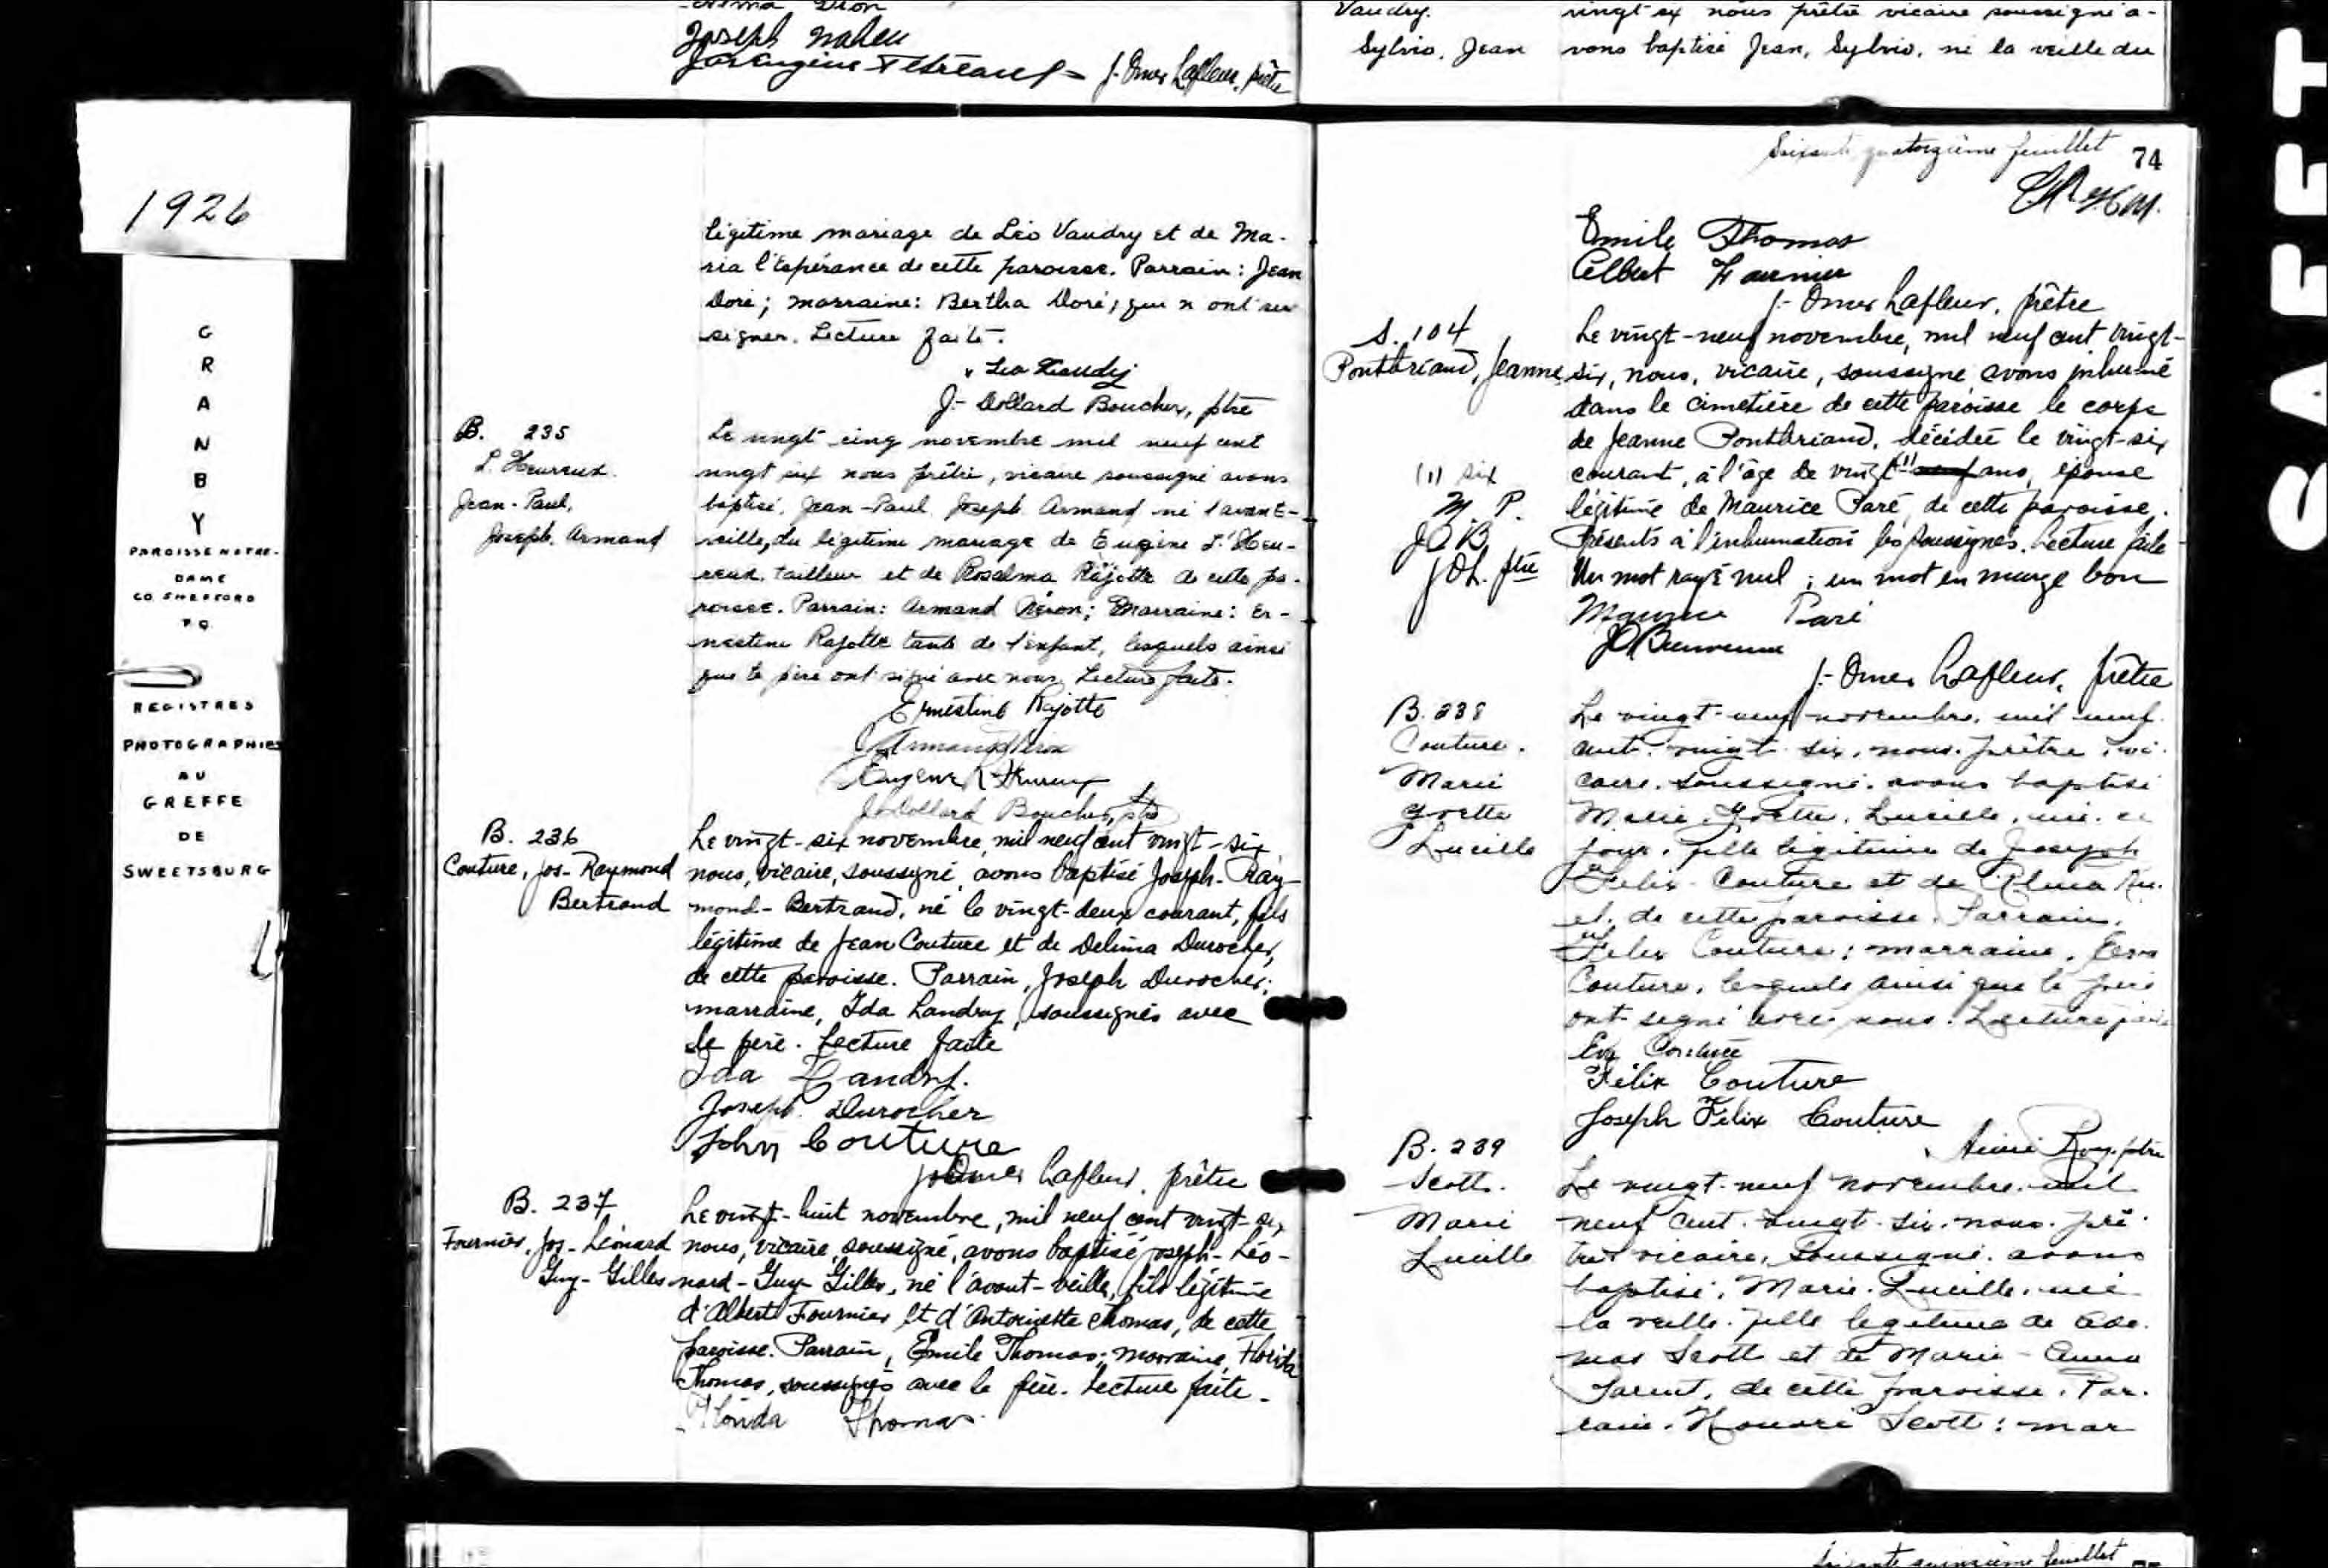 Dion
Joseph
J. Omer Lafleur, prêtre
Vaudry.
Sylvio, Jean
vingt-six nous prêtre vicaire soussigné a-
vons baptisé Jean, Sylvio, né la veille du
1926
GRANBY
PAROISSE NOTRE-
DAME
CO SHEFFORD
P.Q.
REGISTRES
PHOTOGRAPHIES
AU
GREFFE
DE
SWEETSBURG
légitime mariage de Léo Vaudry et de Ma-
ria l'Espérance de cette paroisse. Parrain: Jean
Doré; marraine: Bertha Doré; qui n'ont su
signer. Lecture faite.
Leo Vaudry
J.- Dollard Boucher, ptre
B. 235
L'Heureux.
Jean-Paul,
Joseph. Armand
Le vingt-cinq novembre mil neuf cent
vingt six nous prêtre, vicaire soussigné avons
baptisé, Jean-Paul, Joseph Armand né l'avant-
veille, du légitime mariage de Eugène L'Heu-
reux, tailleur et de Rosalma Rajotte de cette pa-
roisse. Parrain: Armand Néron; Marraine: Er-
nestine Rajotte tante de l'enfant, lesquels ainsi
que le père ont signé avec nous. Lecture faite.
Ernestine Rajotte
Armand Néron
Eugène L'Heureux
J. Dollard Boucher, ptre
B. 236
Couture, Jos-Raymond
Bertrand
Le vingt-six novembre, mil neuf cent vingt-six,
nous, vicaire, soussigné, avons baptisé Joseph-Ray-
mond-Bertrand, né le vingt-deux courant, fils
légitime de Jean Couture et de Delima Durocher,
de cette paroisse. Parrain, Joseph Durocher;
marraine, Ida Landry, soussignés avec
le père. Lecture faite
Ida Landry.
Joseph Durocher
John Couture
J. Omer Lafleur, prêtre
B. 237
Fournier, Jos-Léonard
Guy-Gilles
Le vingt-huit novembre, mil neuf cent vingt-six,
nous, vicaire, soussigné, avons baptisé Joseph-Léo-
nard-Guy-Gilles, né l'avant-veille, fils légitime
d'Albert Fournier et d'Antoinette Thomas, de cette
paroisse. Parrain, Emile Thomas; marraine, Florida
Thomas, soussignés avec le père. Lecture faite.
Florida Thomas.
Soixante quatorzième feuillet 74
Emile Thomas
Albert Fournier
J.- Omer Lafleur, prêtre
S. 104
Pontbriand, Jeanne
Le vingt-neuf novembre, mil neuf cent vingt-
six, nous, vicaire, soussigné, avons inhumé
dans le cimetière de cette paroisse le corps
de Jeanne Pontbriand, décédée le vingt-six
courant, à l'âge de vingt (1) neuf ans, épouse
légitime de Maurice Paré, de cette paroisse.
Présents à l'inhumation les soussignés. Lecture faite
Un mot rayé nul; un mot en marge bon
(1) six
M. P.
JOB
JOL. ptre
Maurice Paré
JO Bienvenue
J.- Omer Lafleur, prêtre
B. 238
Couture.
Marie
Yvette
Lucille
Le vingt-neuf novembre, mil neuf
cent vingt-six, nous, prêtre, vi-
caire, soussigné, avons baptisé
Marie, Yvette, Lucille, née ce
jour, fille légitime de Joseph
Felix Couture et de
de cette paroisse. Parrain,
Felix Couture; marraine, Eva
Couture, lesquels ainsi que le père
ont signé avec nous. Lecture faite
Eva Couture
Félix Couture
Joseph Félix Couture
Aimé Roy, ptre
B. 239
Scott.
Marie
Lucille
Le vingt-neuf novembre, mil
neuf cent vingt-six, nous, prê-
tre vicaire, soussigné, avons
baptisé, Marie, Lucille, née
la veille, fille légitime de Adé-
mas Scott et de Marie-Anna
Parent, de cette paroisse. Par-
rain, Honoré Scott; mar
Soixante quinzième feuillet
SAFET